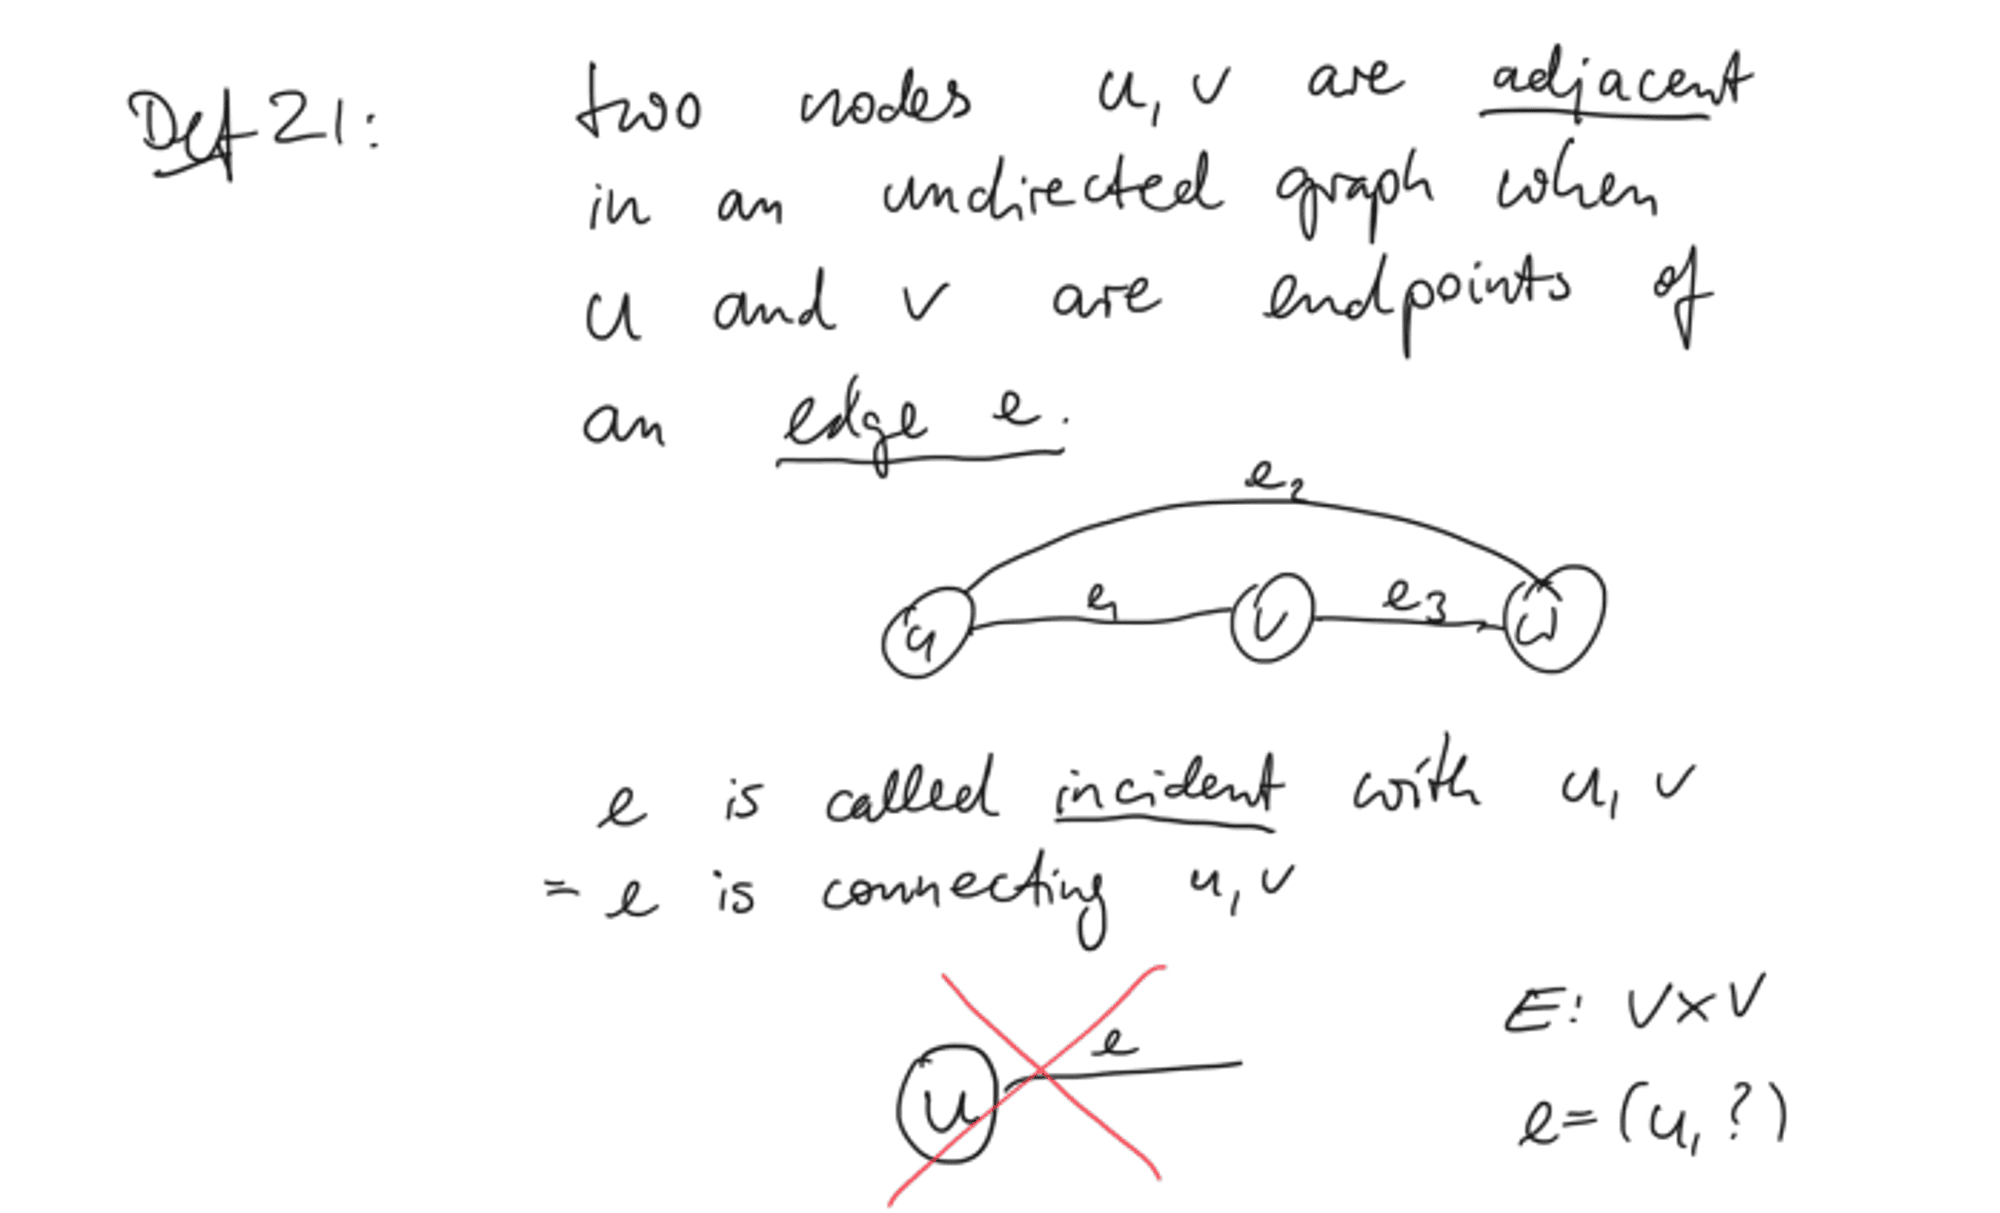 Def 21: two nodes u, v are adjacent
in an undirected graph when
u and v are endpoints of
an edge e.
e2
u e1 v e3 w
e is called incident with u, v
= e is connecting u, v
E: V×V
e
u
e=(u, ?)